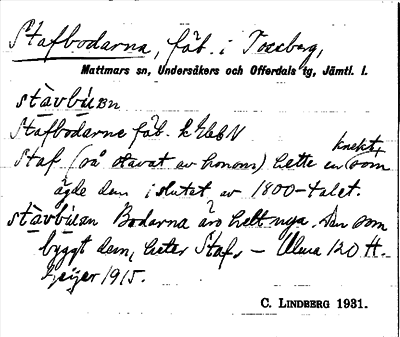 Stafbodarna, fäb. i Tossberg,
Mattmars sn, Undersåkers och Offerdals tg, Jämtl. l.
stàvbúan
Stafbodarne fäb.
Staf (så stavat av honom) hette en knekt, som
ägde dem i slutet av 1800-talet.
stàvbúan Bodarna äro helt nya. Den som
byggt dem, heter Staf. – Ulma 120 H.
Geijer 1915.
C. LINDBERG 1931.